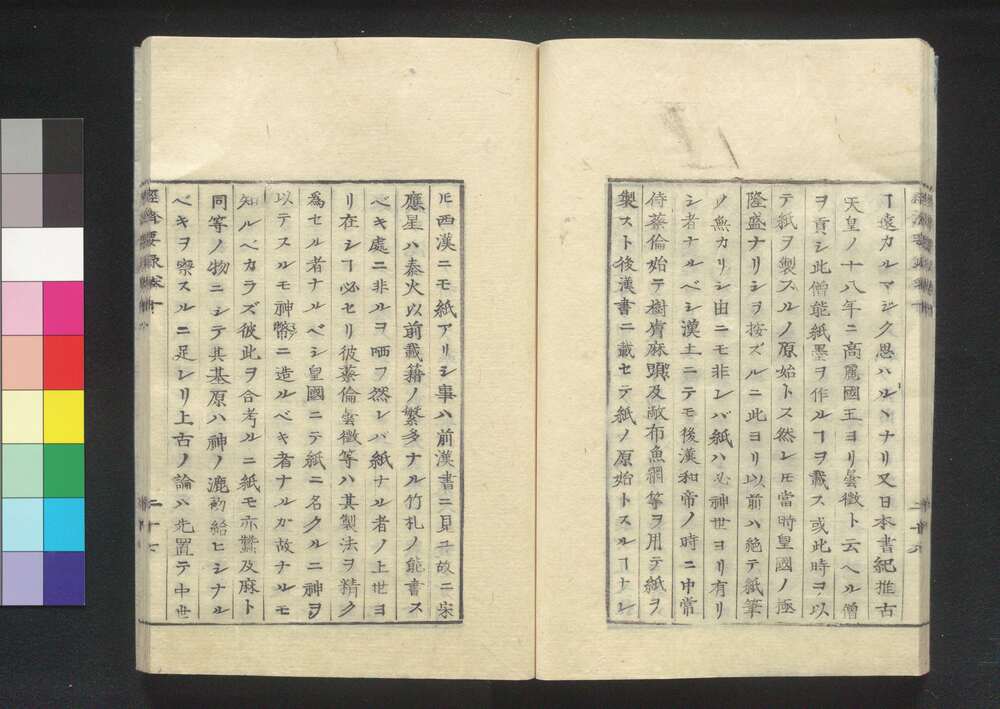 ヿ遠カルマジク思ハルヽナリ又日本書紀推古
天皇ノ十八年ニ高麗國王ヨリ曇徴ト云ヘル僧
ヲ貢シ此僧能紙墨ヲ作ルヿヲ載ス或此時ヲ以
テ紙ヲ製スルノ原始トス然レ𪜈當時皇國ノ極
隆盛ナリシヲ按ズルニ此ヨリ以前ハ絶テ紙筆
ノ無カリシ由ニモ非レバ紙ハ必神世ヨリ有リ
シ者ナルベシ漢土ニテモ後漢和帝ノ時ニ中常
侍蔡倫始テ樹膚麻頭及敝布魚網等ヲ用テ紙ヲ
製スト後漢書ニ載セテ紙ノ原始トスルヿナレ
𪜈西漢ニモ紙アリシ事ハ前漢書ニ見ユ故ニ宋
應星ハ秦火以前載籍ノ繁多ナル竹札ノ能書ス
ベキ處ニ非ルヲ哂フ然レバ紙ナル者ノ上世ヨ
リ在シヿ必セリ彼蔡倫曇徴等ハ其製法ヲ精ク
爲セル者ナルベシ皇國ニテ紙ニ名クルニ神ヲ
以テスルモ神幣ニ造ルベキ者ナルガ故ナルモ
知ルベカラズ彼此ヲ合考ルニ紙モ亦蠶及麻ト
同等ノ物ニシテ其基原ハ神ノ漉初給ヒシナル
ベキヲ察スルニ足レリ上古ノ論ハ先置テ中世